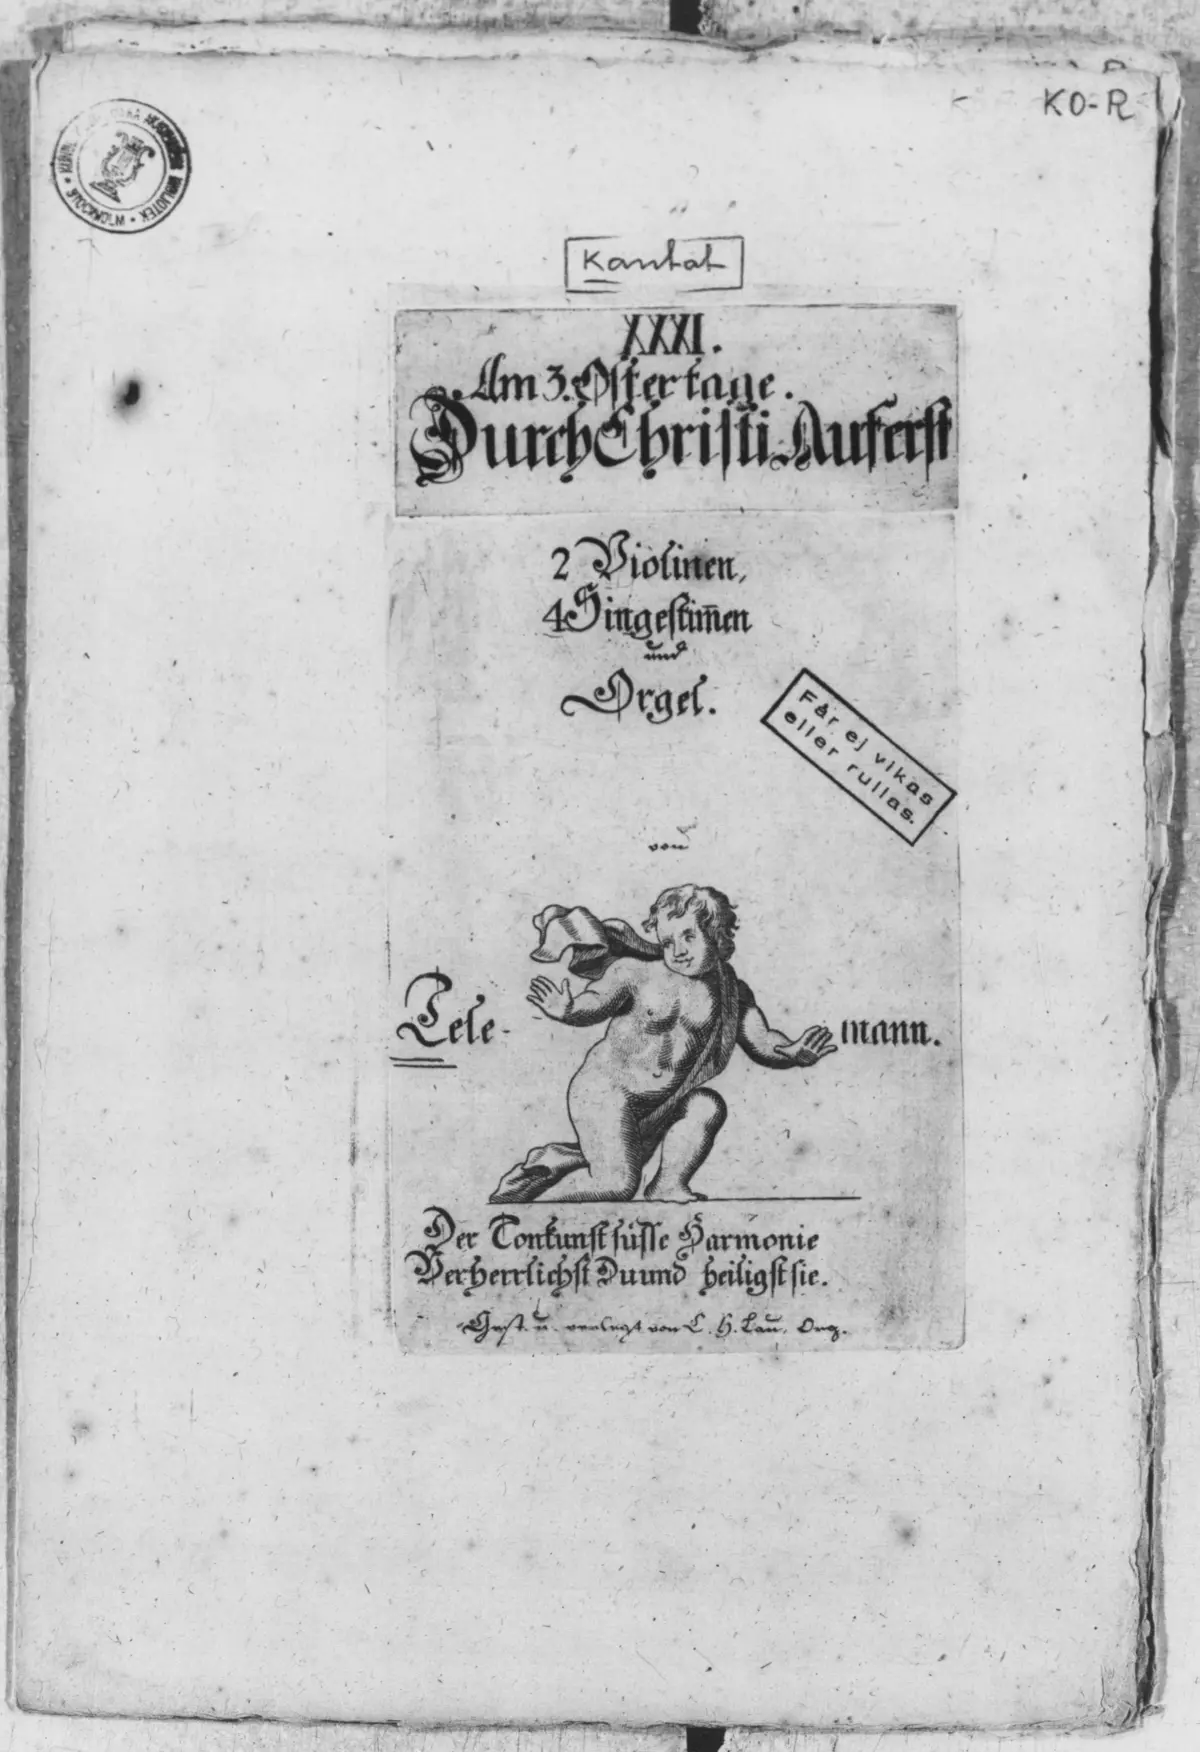 KO-R
BIBLIOTEK • STOCKHOLM •
Kantat
XXXI.
Am 3. Ostertage.
Durch Christi Auferst
2 Violinen,
4 Singestim̅en
und
Orgel.
Får ej vikas
eller rullas.
von
Tele-
mann.
Der Tonkunst süsse Harmonie
Verherrlichst Du und heiligst sie.
Gest. u. verlegt von C. H. Lau, Org.